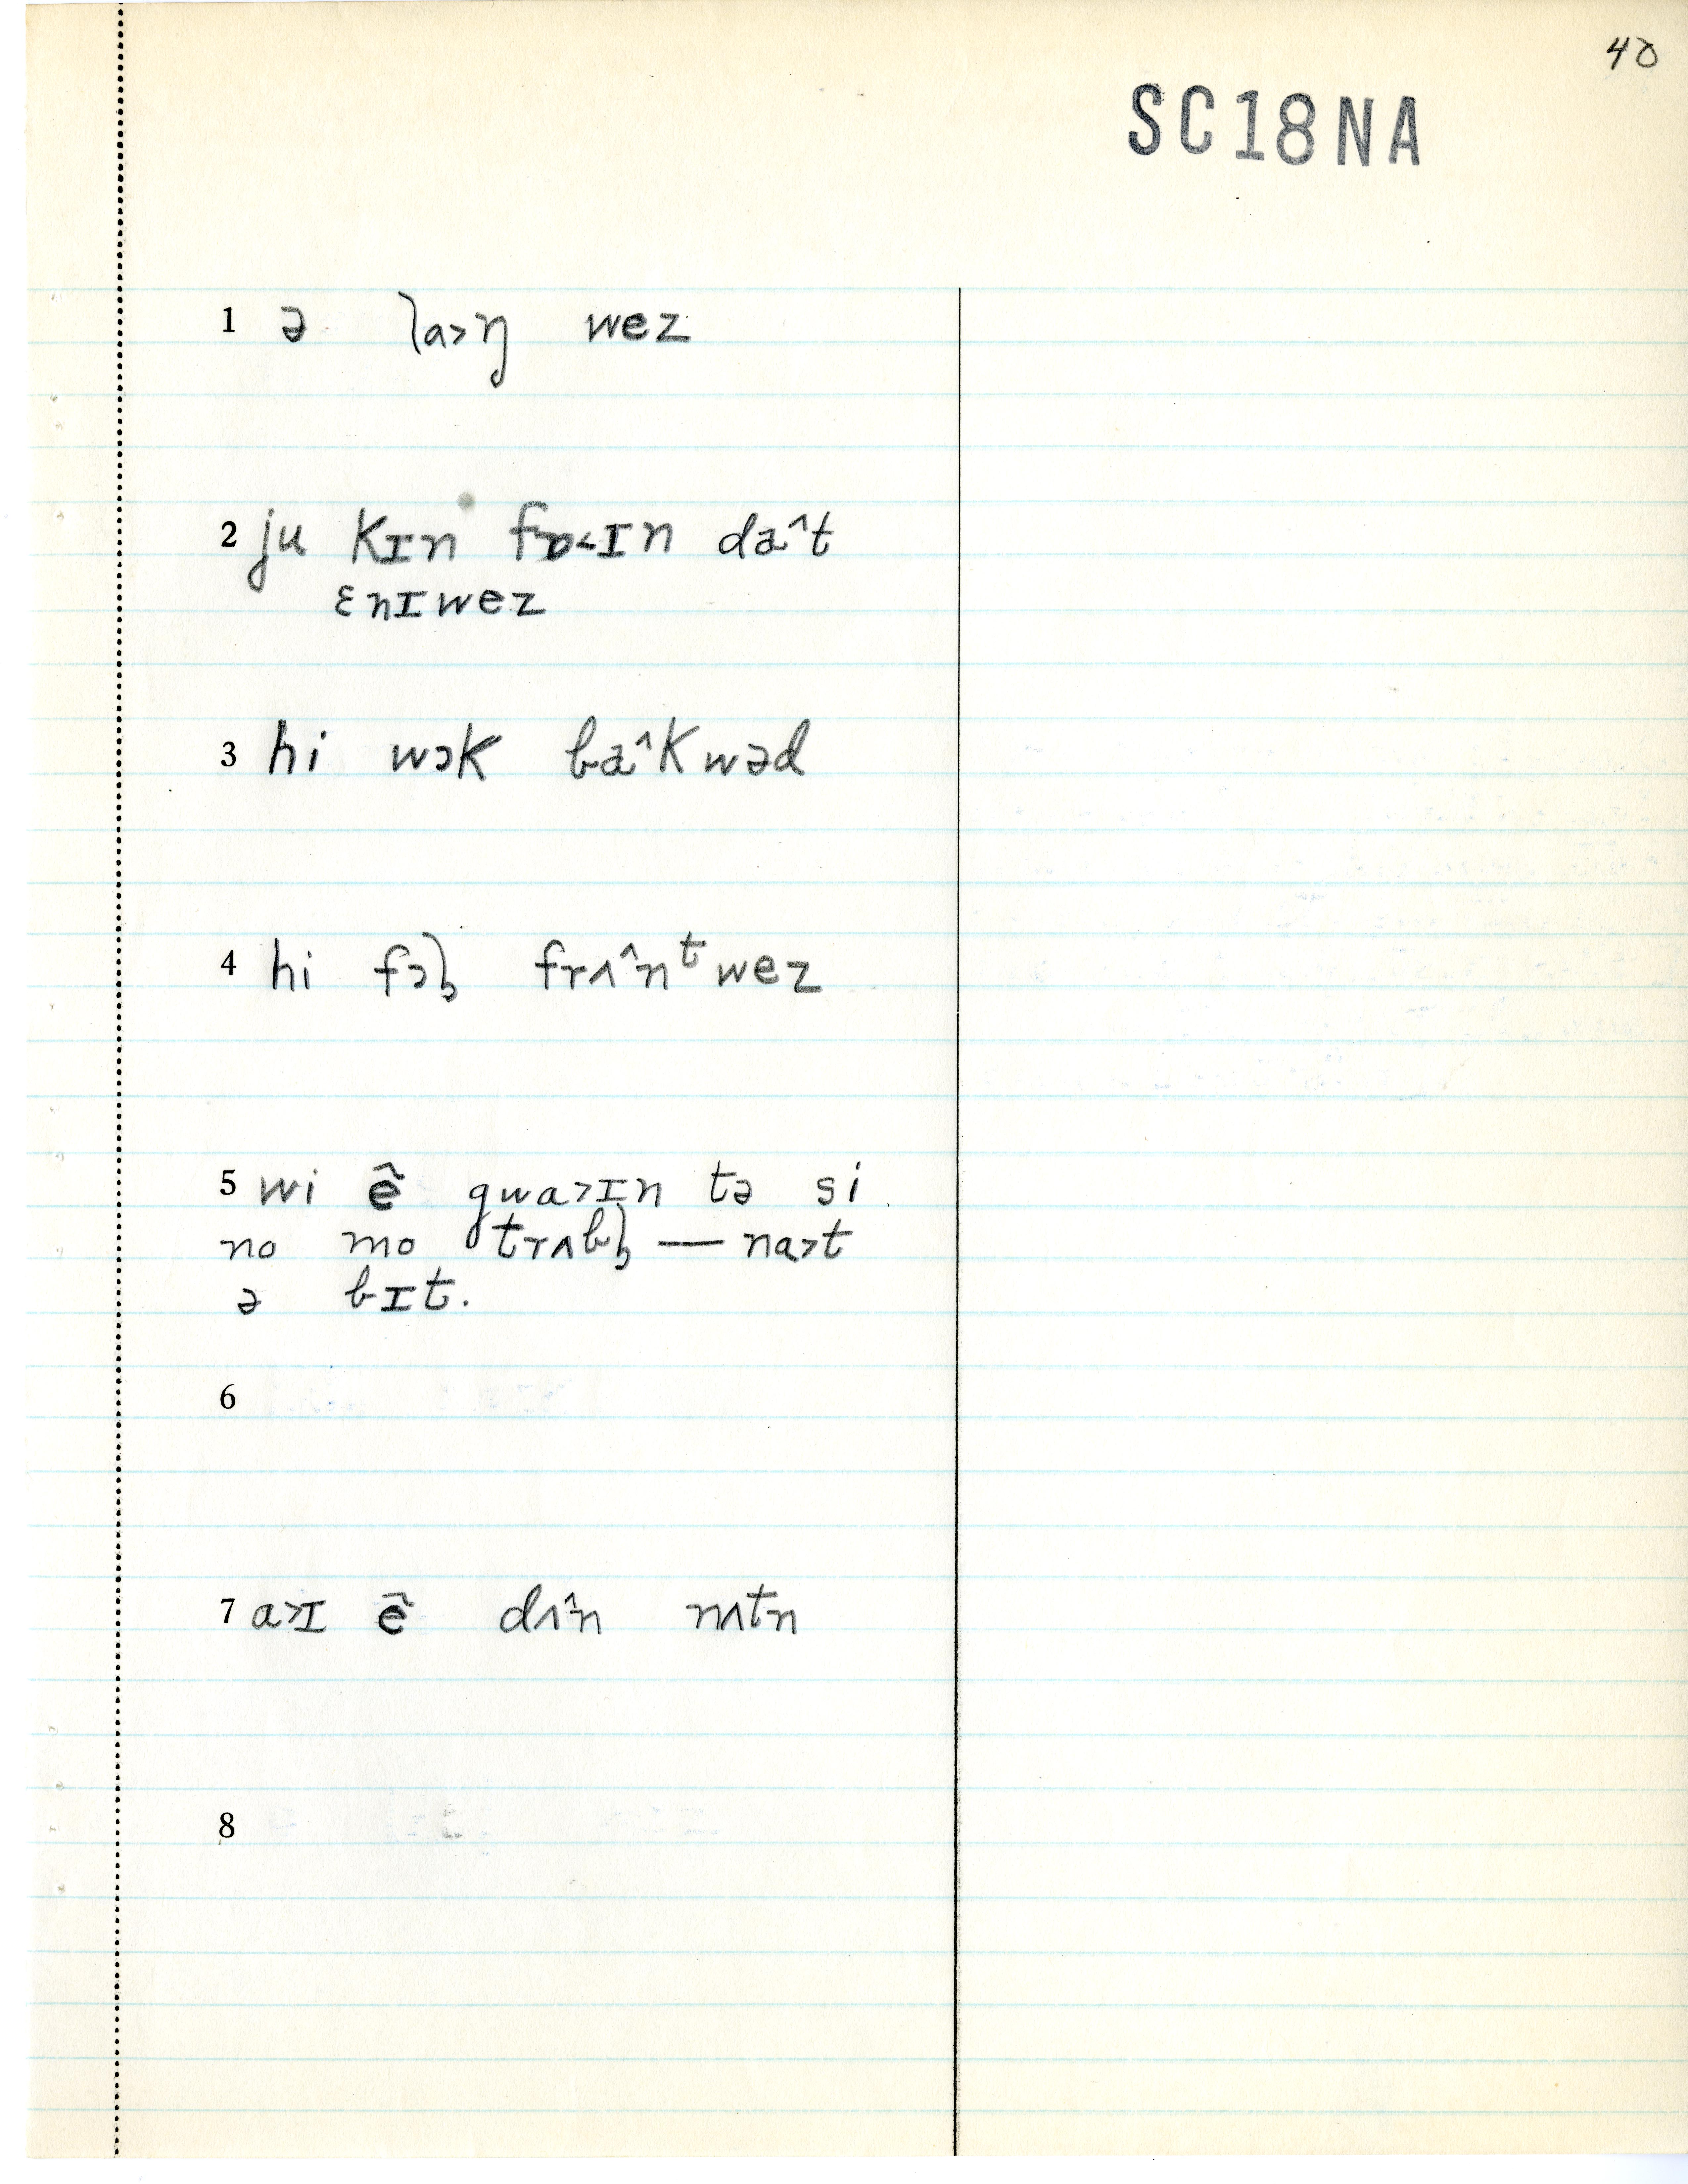 40
SC18NA
1 ə laɔŋ wez
2 ju kɪn fɒ˂ɪn da^t
ɛnɪwez
3 hi wɔk ba^kwəd
4 hi fɔl̩ frʌ^nᵗwez
5 wi ẽ gwa˃ɪn tə si
no mo trʌbl̩ — na˃t
ə bɪt.
6
7 a˃ɪ ẽ dʌ^n nʌtn
8